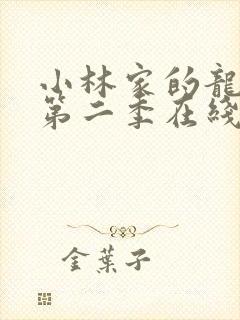 小林家的龍
第二季在綫
金葉子